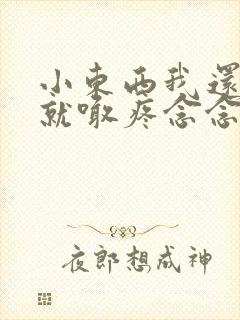 小東西我還
就喊疼念念
夜郎想成神